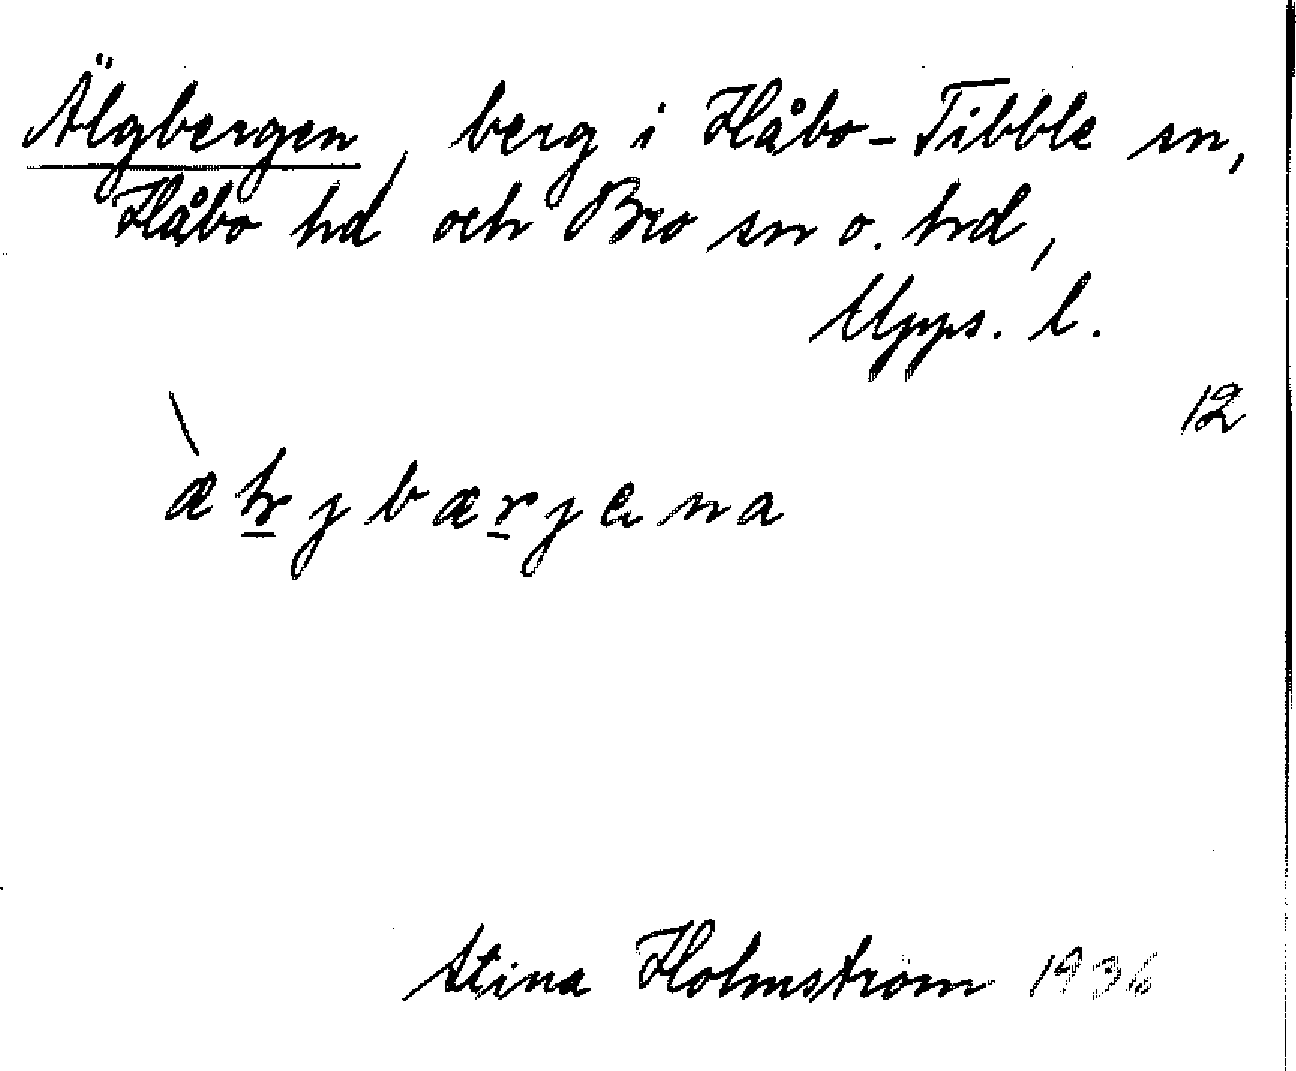 Älgbergen, berg i Håbo-Tibble sn,
Håbo hd och Bro sn o. hd,
Upps. l.
12
Stina Holmström 1936